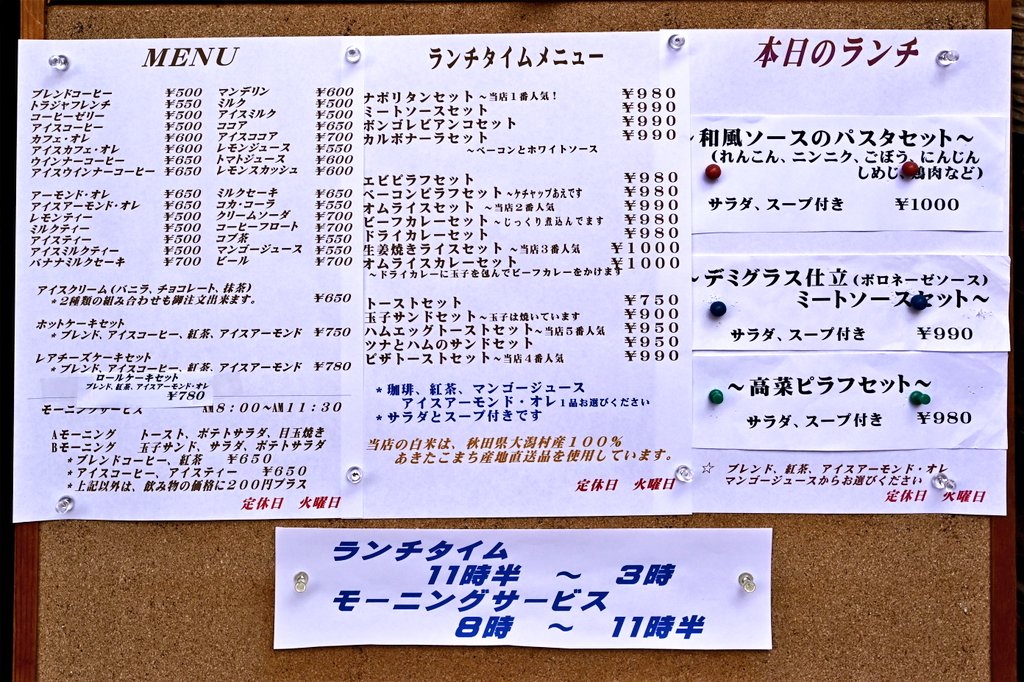 MENU
ブレンドコーヒー ¥500 マンデリン ¥600
トラジャフレンチ ¥550 ミルク ¥500
コーヒーゼリー ¥500 アイスミルク ¥500
アイスコーヒー ¥500 ココア ¥650
カフェ・オレ ¥600 アイスココア ¥700
アイスカフェ・オレ ¥600 レモンジュース ¥550
ウインナーコーヒー ¥650 トマトジュース ¥600
アイスウインナーコーヒー ¥650 レモンスカッシュ ¥600
アーモンド・オレ ¥650 ミルクセーキ ¥650
アイスアーモンド・オレ ¥650 コカ・コーラ ¥550
レモンティー ¥500 クリームソーダ ¥700
ミルクティー ¥500 コーヒーフロート ¥700
アイスティー ¥500 コブ茶 ¥550
アイスミルクティー ¥500 マンゴージュース ¥550
バナナミルクセーキ ¥700 ビール ¥700
アイスクリーム(バニラ、チョコレート、抹茶)
*2種類の組み合わせも御注文出来ます。 ¥650
ホットケーキセット
*ブレンド、アイスコーヒー、紅茶、アイスアーモンド ¥750
レアチーズケーキセット
*ブレンド、アイスコーヒー、紅茶、アイスアーモンド ¥780
ロールケーキセット
ブレンド、紅茶、アイスアーモンド・オレ
¥780
モーニングサービス AM8:00~AM11:30
Aモーニング トースト、ポテトサラダ、目玉焼き
Bモーニング 玉子サンド、サラダ、ポテトサラダ
*ブレンドコーヒー、紅茶 ¥650
*アイスコーヒー、アイスティー ¥650
*上記以外は、飲み物の価格に200円プラス
定休日 火曜日
ランチタイムメニュー
ナポリタンセット~当店1番人気! ¥980
ミートソースセット ¥990
ボンゴレビアンコセット ¥990
カルボナーラセット ¥990
~ベーコンとホワイトソース
エビピラフセット ¥980
ベーコンピラフセット~ケチャップあえです ¥980
オムライスセット ~当店2番人気 ¥990
ビーフカレーセット~じっくり煮込んでます ¥980
ドライカレーセット ¥980
生姜焼きライスセット ~当店3番人気 ¥1000
オムライスカレーセット ¥1000
~ドライカレーに玉子を包んでビーフカレーをかけます
トーストセット ¥750
玉子サンドセット~玉子は焼いています ¥900
ハムエッグトーストセット~当店5番人気 ¥950
ツナとハムのサンドセット ¥950
ピザトーストセット~当店4番人気 ¥990
*珈琲、紅茶、マンゴージュース
アイスアーモンド・オレ 1品お選びください
*サラダとスープ付きです
当店の白米は、秋田県大潟村産100%
あきたこまち産地直送品を使用しています。
定休日 火曜日
本日のランチ
~和風ソースのパスタセット~
(れんこん、ニンニク、ごぼう、にんじん
しめじ、鶏肉など)
サラダ、スープ付き ¥1000
~デミグラス仕立(ボロネーゼソース)
ミートソースセット~
サラダ、スープ付き ¥990
~高菜ピラフセット~
サラダ、スープ付き ¥980
☆ ブレンド、紅茶、アイスアーモンド・オレ
マンゴージュースからお選びください
定休日 火曜日
ランチタイム
11時半 ~ 3時
モーニングサービス
8時 ~ 11時半